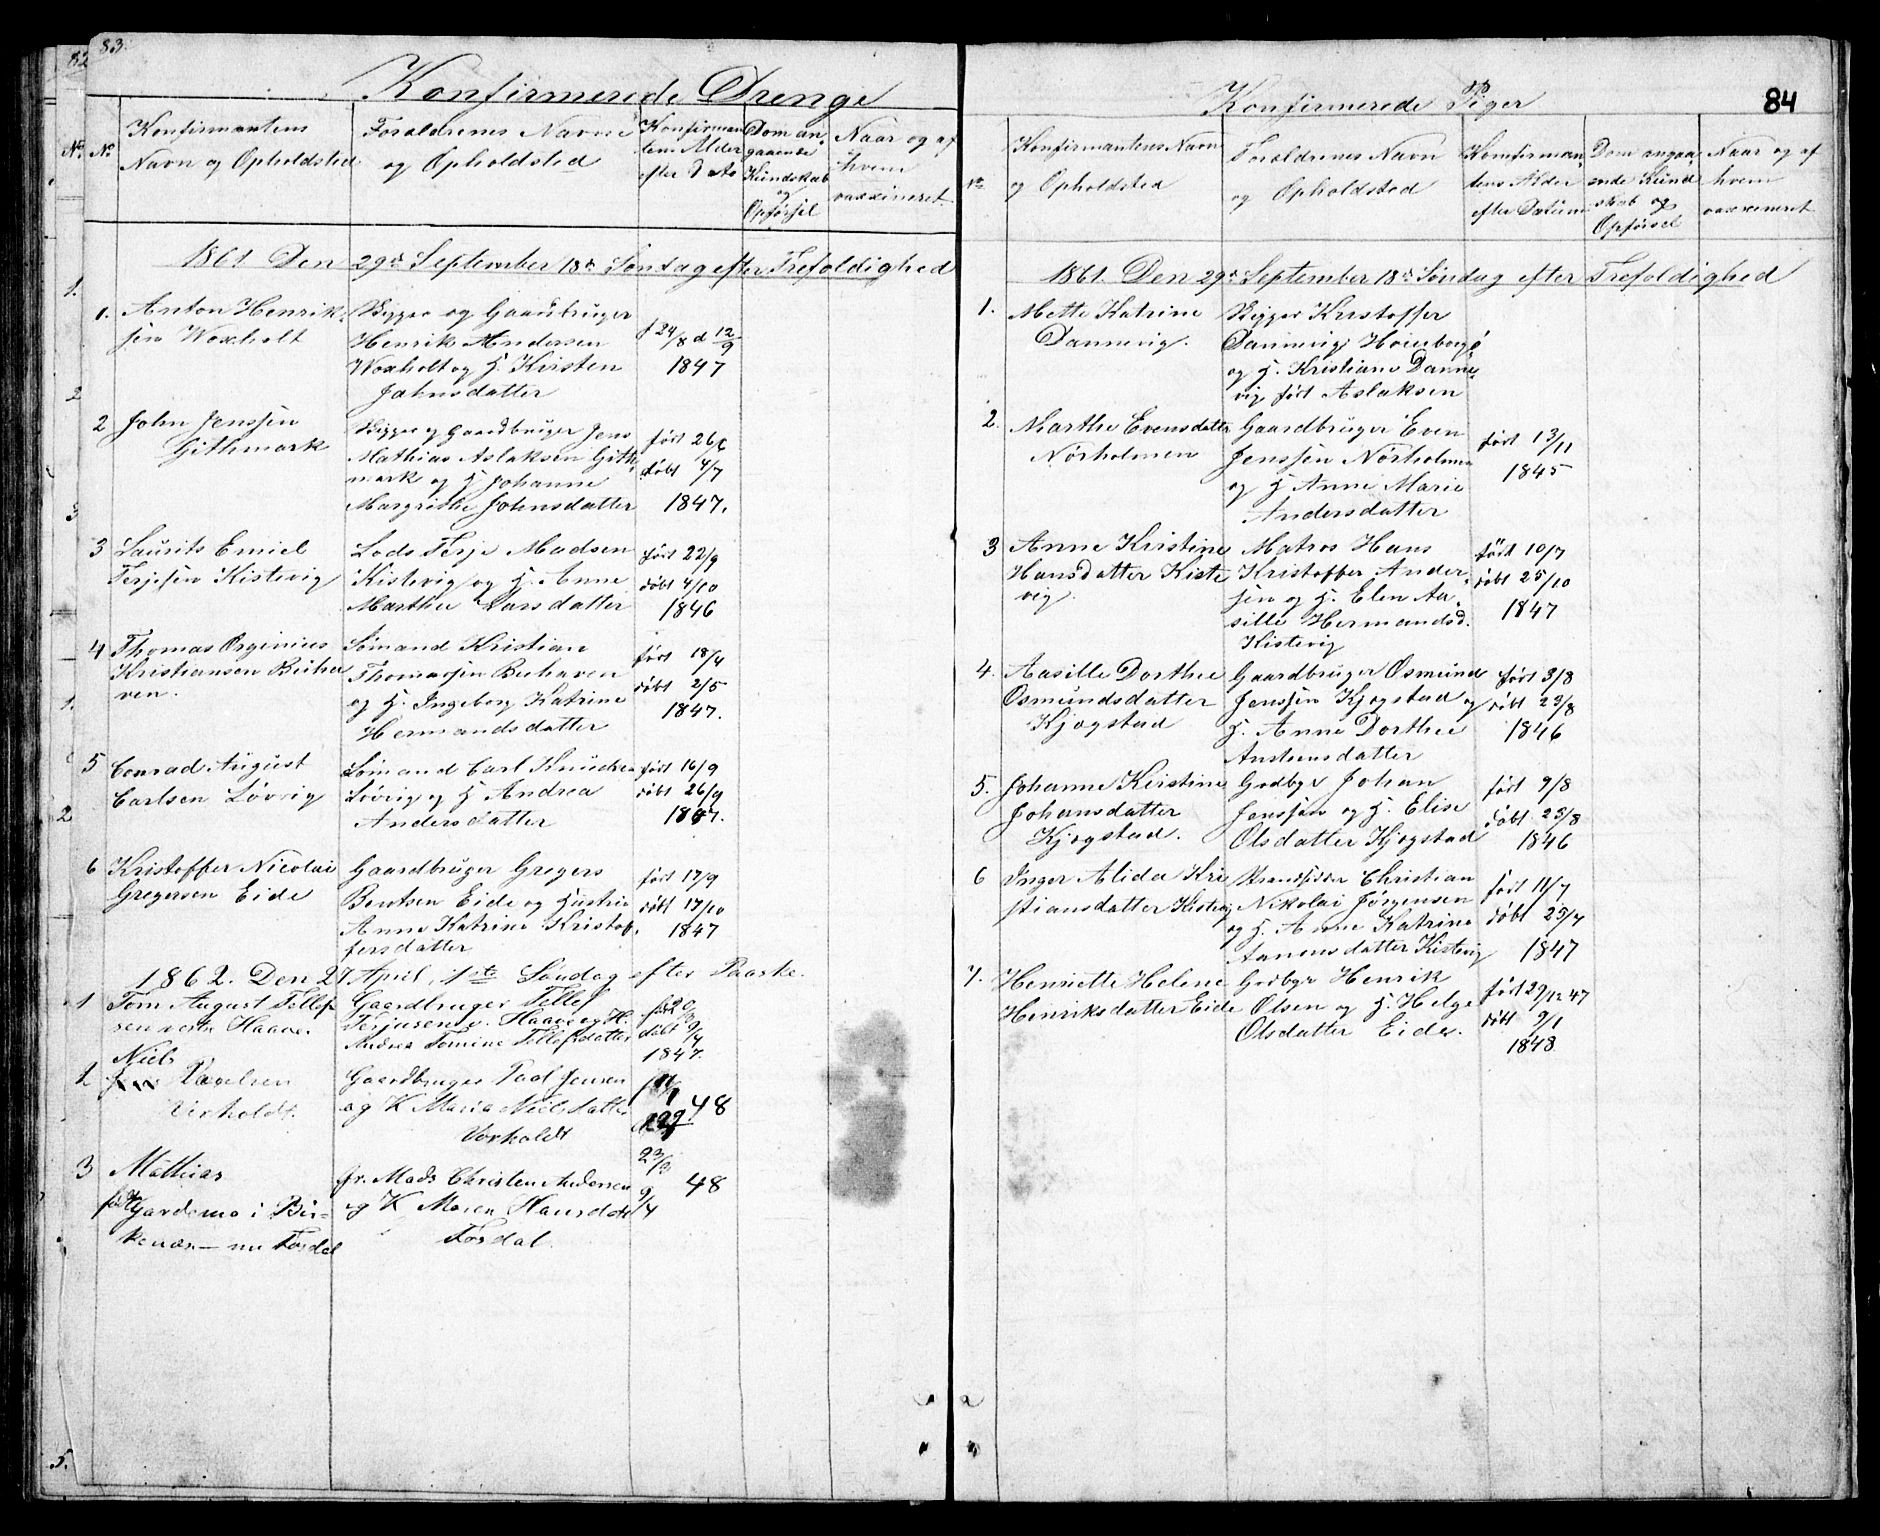 83.
Konfirmerede Drenge
No.
Konfirmantens
Navn og Opholdsted
Forældrenes Navne
og Opholdsted
Konfirman
tens Alder
efter Dato
Dom an-
gaaende
Kundskab
og
Opførsel
Naar og af
hvem
vaxsineret.
1861 Den 29de September 18de Søndag efter Trefoldighed
1. Anton Henrik-
sen Woxholt
Bygger og Gaardbruger
Henrik Andersen
Woxholt og H. Kirsten
Jahnsdatter
f 24/8 d 12/9
1847
2 John Jenssen
Githmark
Bygger og Gaardbruger Jens
Mathias Aslaksen Gith-
mark og H Johanne
Margrethe Johnsdatter
født 26/6
døbt 4/7
1847.
3 Laurits Emiel
Terjesen Kistevig
Lods Terje Madsen
Kistevig og H. Anne
Marthe Larsdatter
født 22/9
døbt 4/10
1846
4 Thomas Orginius
Kristiansen Buha
ven.
Sømand Kristian
Thomassen Buhaven
og H. Ingeborg Katrine
Hermandsdatter
født 18/4
døbt 2/5
1847.
5 Conrad August
Carlsen Løvvig
Sømand Carl Knudsen
Løvvig og H Andrea
Andersdatter
født 16/9
døbt 26/9
1847.
6 Kristoffer Nicolai
Gregersen Eide
Gaardbruger Gregers
Bentsen Eide og Hustru
Anne Katrine Kristof-
fersdatter
født 17/9
døbt 17/10
1847
1862. Den 27 April, 1ste Søndag efter Paaske.
1 Tom August Tellef
sen Haave.
Gaardbruger Tellef
Terjusen v. Haave og H.
Andrea Tomine Tellefsdatter
1847.
2 Niels
Paalsen
Vorholdt.
Gaardbruger Paal Jensen
og K Maria Nielsdatter
Vorholdt
48
3 Mathias
født Gardemo i Bir-
kenæs — nu Fosdal
fr. Mads Christen Andersen
og K Maren Hansdatt
Fosdal.
23/3
9/4
48
Konfirmerede Piger
84
No
Konfirmantens Navn
og Opholdsted
Forældrenes Navn
og Opholdsted
Konfirman-
tens Alder
efter Datum
Dom angaa-
ende Kund
skab og
Opførsel
Naar og af
hvem
vaxsineret
1861. Den 29de September 18de Søndag efter Trefoldighed
1. Mette Katrine
Dannevig.
Bygger Kristoffer
Dannevig Hoieborg
og H. Kristiane Danne-
vig født Aslaksen
2. Marthe Evensdatter
Nørholmen
Gaardbruger Even
Jenssen Nørholmen
og H Anne Marie
Andersdatter
født 13/11
1845
3 Anne Kristine
Hansdatter Kiste
vig.
Matros Hans
Kristoffer Ander-
sen og H. Elen Aa-
sille Hermandsd.
Kistevig
født 10/7
døbt 25/10
1847
4. Aasille Dorthe
Osmundsdatter
Kjøgstad
Gaardbruger Osmund
Jenssen Kjøgstad og
H. Anne Dorthea
Anstensdatter
født 3/8
døbt 23/8
1846
5. Johanne Kirstine
Johansdatter
Kjøgstad.
Grdbgr Johan
Jenssen og H. Elise
Olsdatter Kjøgstad
født 9/8
døbt 23/8
1846
6 Inger Alida Kri
stiansdatter Kistevig
Strandsidder Christian
Nikolai Jørgensen
og H. Anne Katrine
Aanensdatter Kistevig
født 11/7
døbt 25/7
1847
7. Henriette Helene
Henriksdatter Eide
Grdbgr Henrik
Olsen og H. Helge
Olsdatter Eide.
født 29/12 47
døbt 9/1
1848